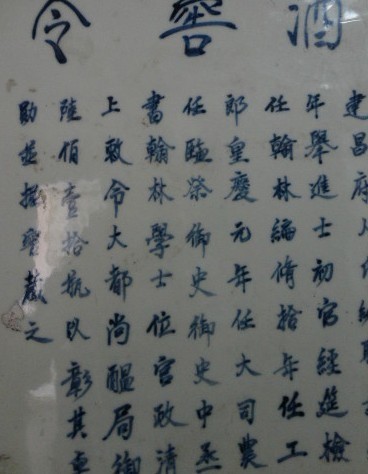 酒窖令
建昌府人
年舉進士初官經筵檢
任翰林編修拾年任工
郎皇慶元年任大司農
任臨榮御史御史中丞
書翰林學士位官政清
上敕令大都尚醞局御
陸佰壹拾瓶以彰其卓
勛並撥窖藏之